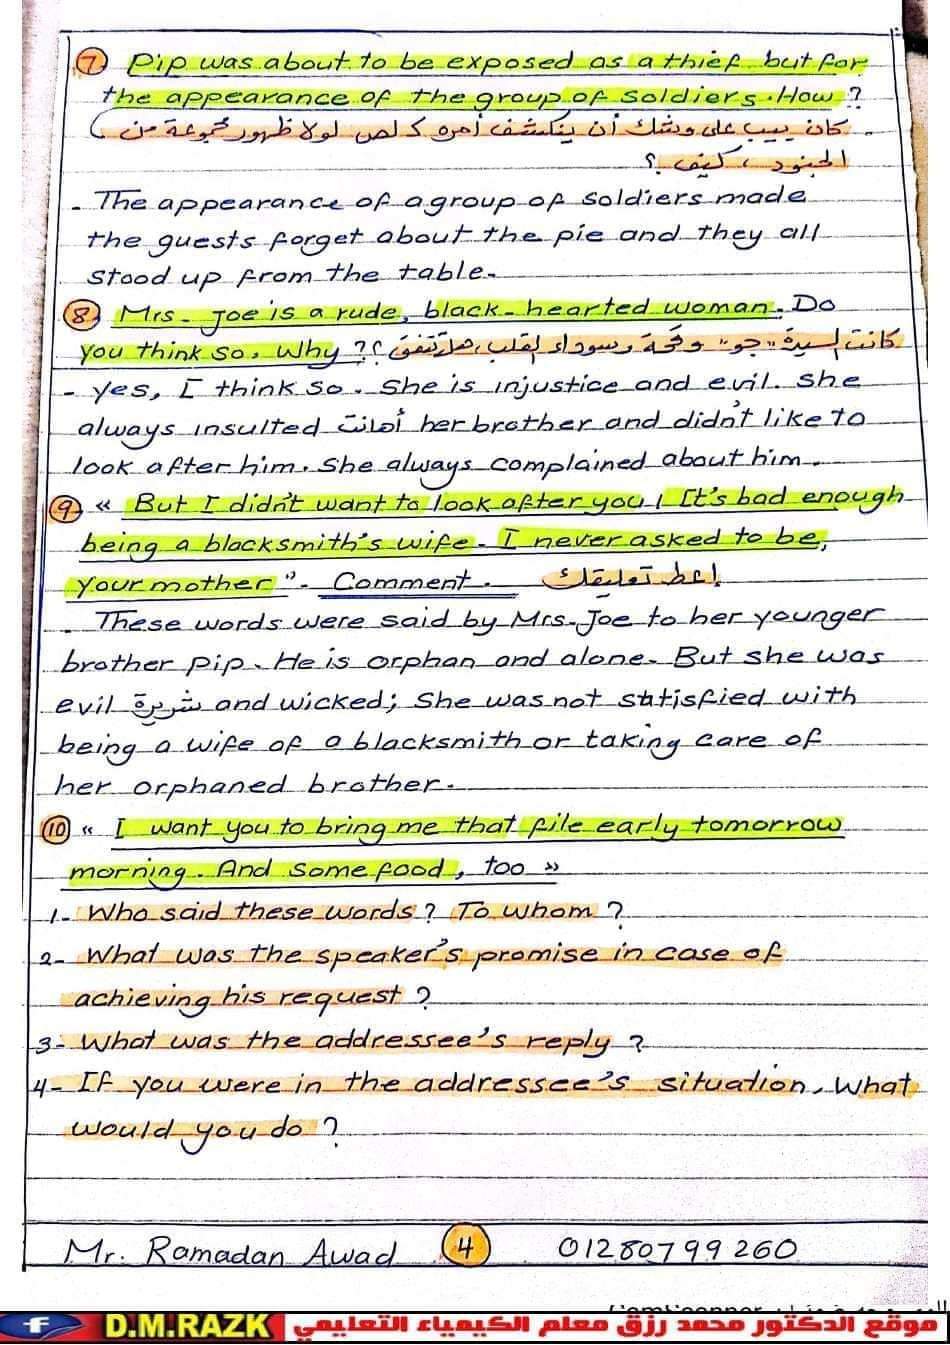 7 Pip was about to be exposed as a thief but for
the appearance of the group of soldiers. How ?
كان بيب على وشك أن ينكشف أمره كلص لولا ظهور مجموعة من
الجنود، كيف ؟
- The appearance of a group of soldiers made
the guests forget about the pie and they all
stood up from the table.
8 Mrs. Joe is a rude, black-hearted woman. Do
you think so. Why ? كانت السيدة "جو" وقحة وسوداء القلب، هل تتفق ؟
- yes, I think so. She is injustice and evil. she
always insulted أهانت her brother and didn't like to
look after him. She always complained about him.
9 « But I didn't want to look after you! It's bad enough
being a blacksmith's wife. I never asked to be,
your mother ". Comment. إعط تعليقك
- These words were said by Mrs. Joe to her younger
brother pip. He is orphan and alone. But she was
evil شريرة and wicked; She was not satisfied with
being a wife of a blacksmith or taking care of
her orphaned brother.
10 « I want you to bring me that file early tomorrow
morning. And some food, too »
1- Who said these words ? To whom ?
2- What was the speaker's promise in case of
achieving his request ?
3- What was the addressee's reply ?
4- If you were in the addressee's situation, what
would you do ?
Mr. Ramadan Awad 4 01280799260
f D.M.RAZK موقع الدكتور محمد رزق معلم الكيمياء التعليمي